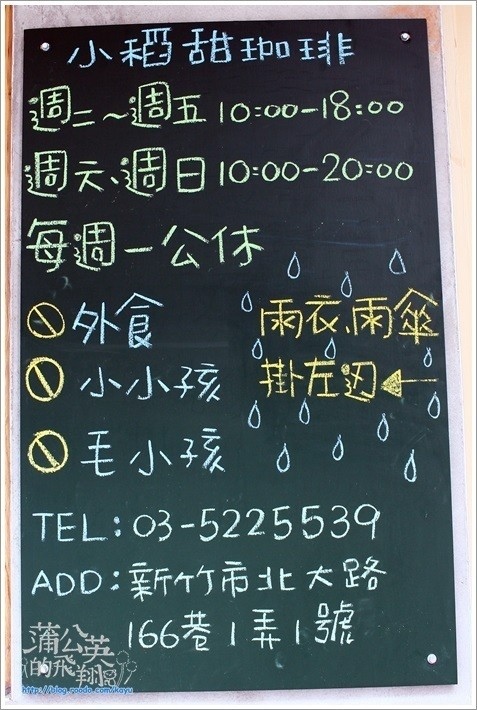 小稻甜珈琲
週二～週五10:00-18:00
週六、週日10:00-20:00
每週一公休
外食
小小孩
毛小孩
雨衣、雨傘
掛左边
TEL:03-5225539
ADD:新竹市北大路
166巷1弄1號
蒲公英
的飛翔
http://blog.roodo.com/kayu